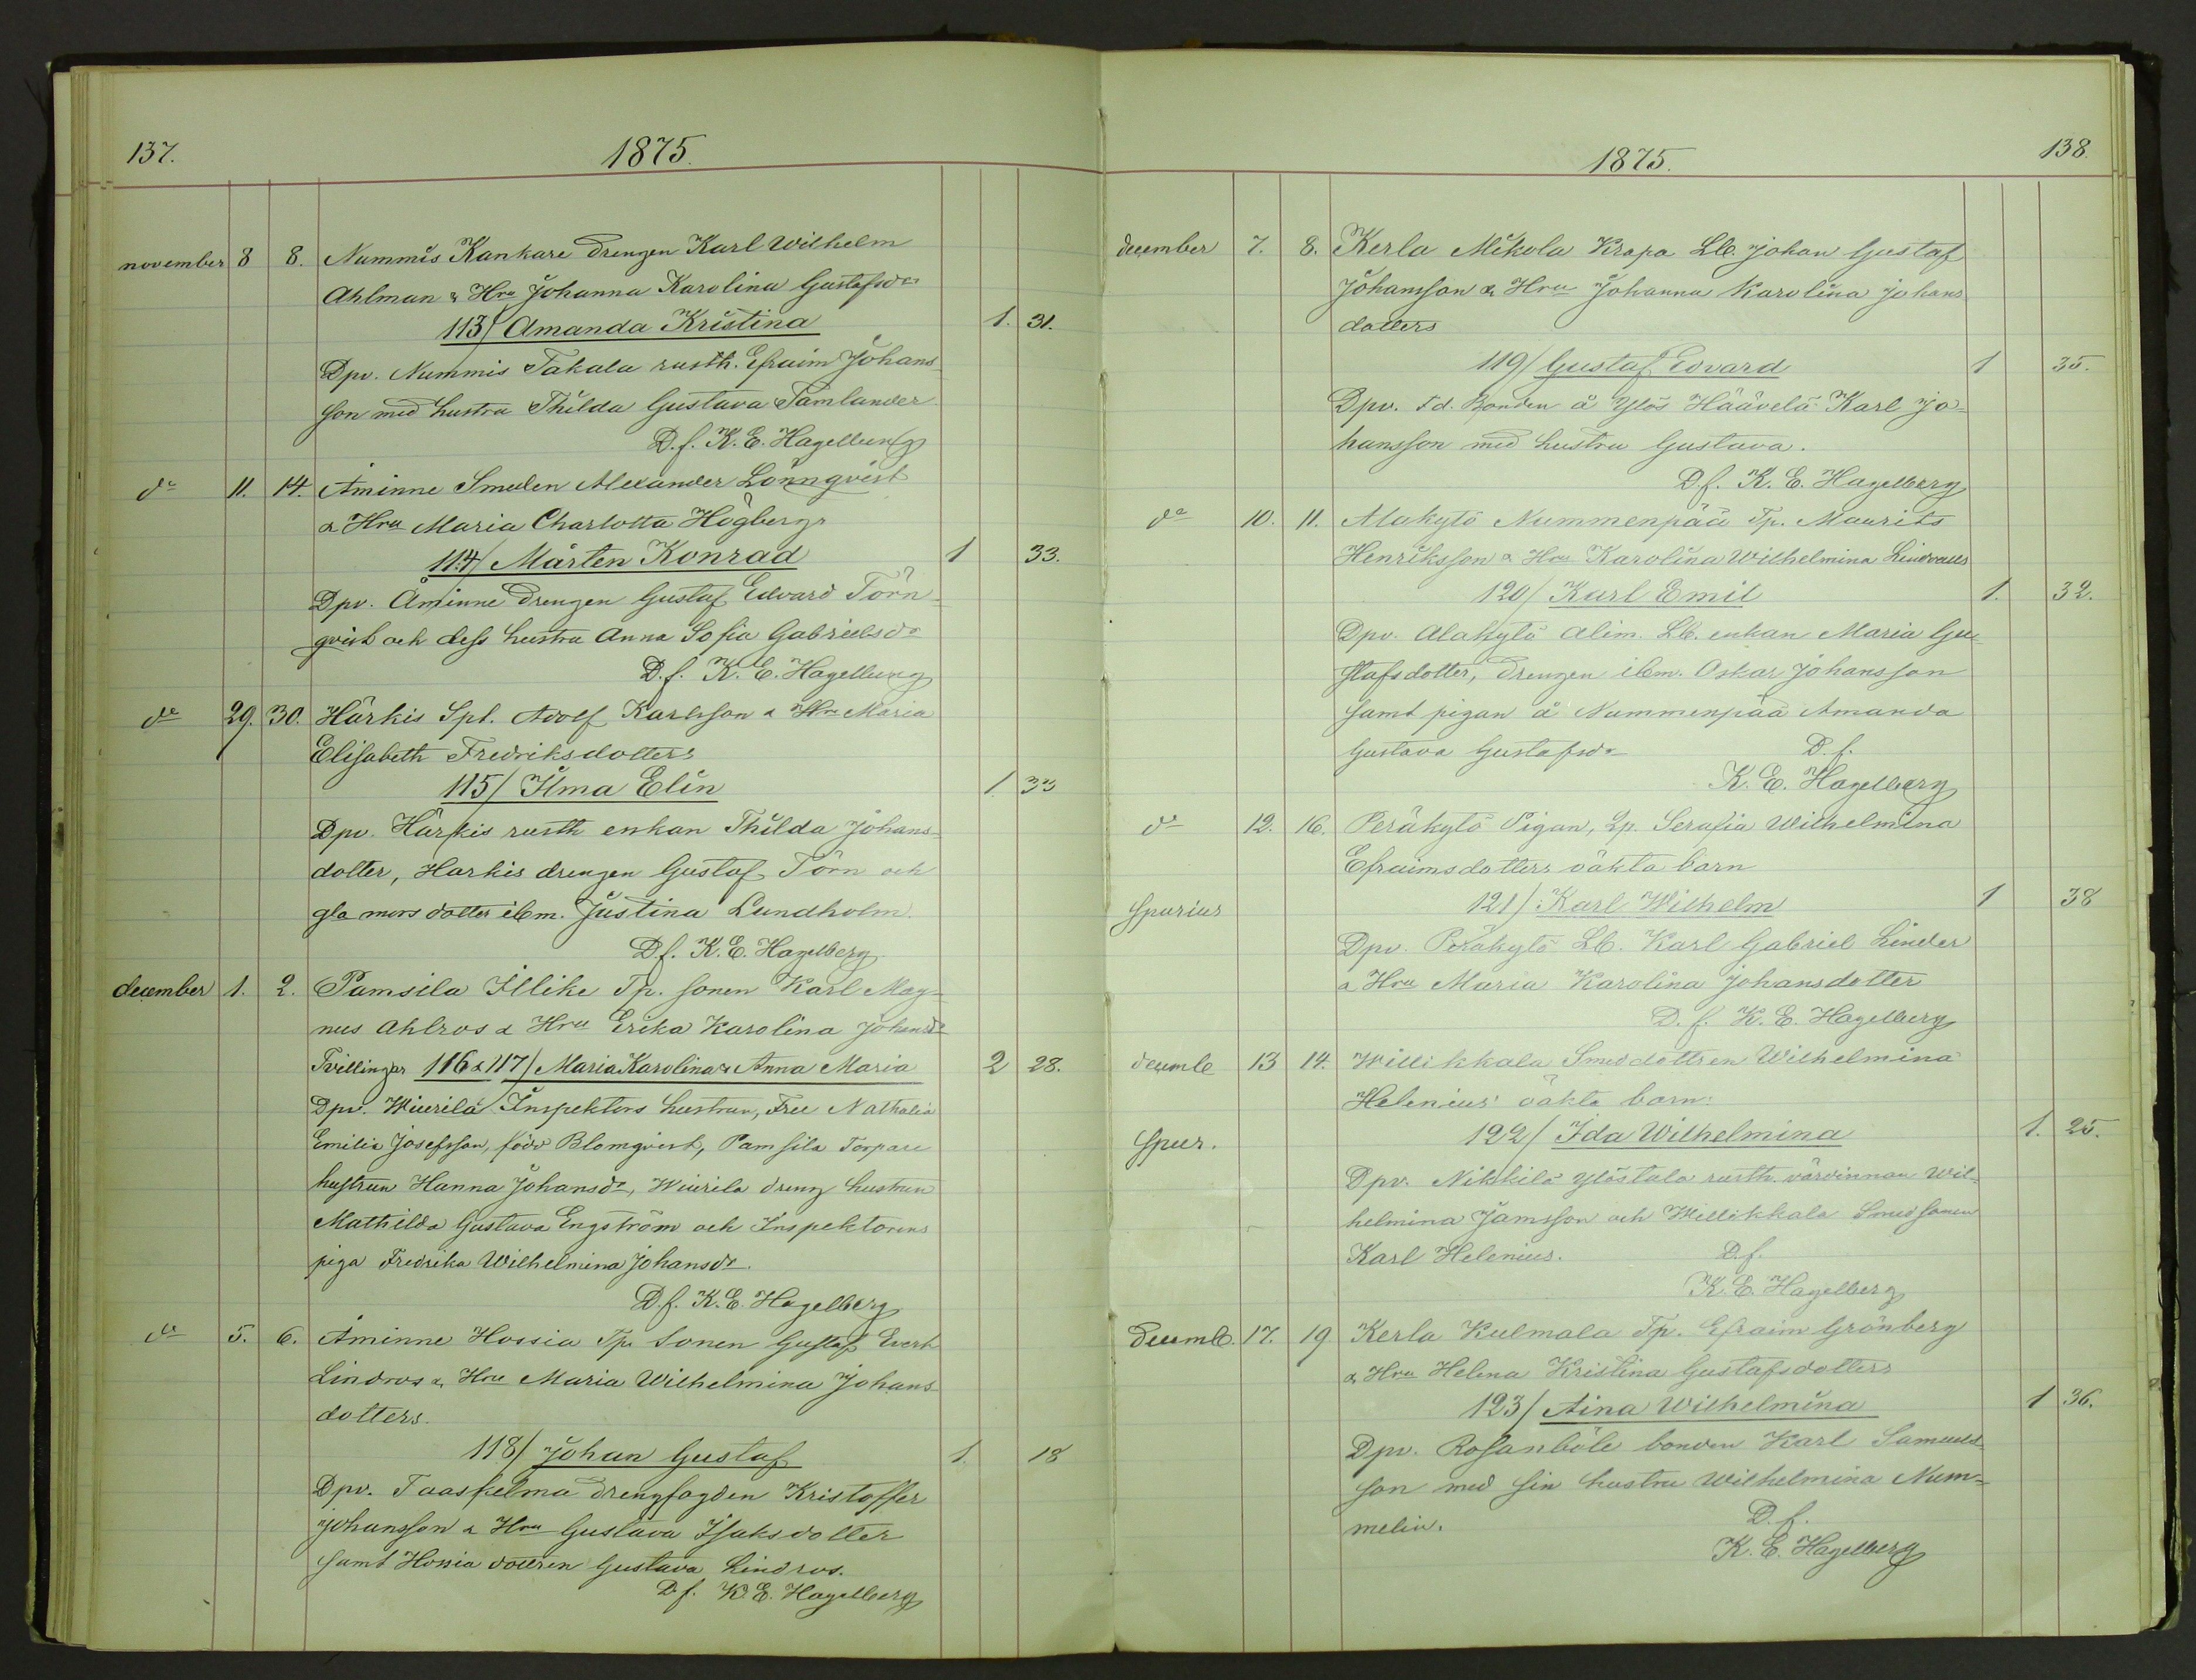 137.
1875.
november 8 8. Nummis Kankare drengen Karl Wilhelm
Ahlman & Hru Johanna Karolina Gustafsdr
113/ Amanda Kristina 1. 31.
Dpv. Nummis Takala rusth. Efraim Johans
son med hustru Thilda Gustava Tamlander
D.f. K. E. Hagelberg
do 11. 14. Åminne Smeden Alexander Lönnqvist
& Hru Maria Charlotta Högbergs
114/ Mårten Konrad 1 33.
Dpv. Åminne drengen Gustaf Edvard Törn
qvist och dess hustru Anna Sofia Gabrielsdr
D.f. K. E. Hagelberg
do 29. 30. Härkis Spl. Adolf Karlsson & Hru Maria
Elisabeth Fredriksdotters
115/ Ilma Elin 1. 33
Dpv. Härkis rusth enkan Thilda Johans
dotter, Harkis drengen Gustaf Törn och
gla mors dotter ibm. Justina Lundholm
D.f. K. E. Hagelberg
december 1. 2. Pamsila Illike Tp. sonen Karl Mag-
nus Ahlros & Hru Erika Karolina Johansdr
Tvillingar 116 & 117/ Maria Karolina & Anna Maria 2 28.
Dpv. Wiurila Inspektors hustrun, Fru Nathalia
Emilia Josefsson, född Blomqvist, Pamsila Torpare
hustrun Hanna Johansdr, Wiurila dreng hustrun
Mathilda Gustava Engström och Inspektorens
piga Fredrika Wilhelmina Johansdr.
D.f. K. E. Hagelberg
do 5. 6. Åminne Hossia Tp. Sonen Gustaf Evert
Lindros & Hru Maria Wilhelmina Johans
dotters.
118/ Johan Gustaf 1. 18
Dpv. Taaskelma drengfogden Kristoffer
Johansson & Hru Gustava Isaksdotter
samt Hossia dottren Gustava Lindros.
D.f. K. E. Hagelberg
1875.
138.
december 7. 8. Kerla Mikola Krapa Lb. Johan Gustaf
Johansson & Hru Johanna Karolina Johans
dotters
119/ Gustaf Edvard 1 35.
Dpv. F.d. Bonden å Ylös Häävelä Karl Jo-
hansson med hustru Gustava.
D.f. K. E. Hagelberg
do 10. 11. Alakytö Nummenpää Tp. Maurits
Henriksson & Hru Karolina Wilhelmina Lindvalls
120/ Karl Emil 1. 32.
Dpv. Alakylö alim. Lb. enkan Maria Gu-
stafsdotter, drengen ibm. Oskar Johansson
samt pigan å Nummenpää Amanda
Gustava Gustafsdr D.f.
K. E. Hagelberg
do 12. 16. Peräkytö Pigan, Lp. Serafia Wilhelmina
Efraimsdotters oäkta barn
spurius 121/ Karl Wilhelm 1 38
Dpv. Peräkytö Lb. Karl Gabriel Linder
& Hru Maria Karolina Johansdotter
D.f. K. E. Hagelberg
decemb 13 14. Willikkala Smeddottren Wilhelmina
Helenius' oäkta barn:
spur. 122/ Ida Wilhelmina 1. 25.
Dpv. Nikkilä Ylöstalo rusth. värdinnan Wil-
helmina Jamsson och Willikkala Smed sonen
Karl Helenius. D.f.
K. E. Hagelberg
Decemb. 17. 19 Kerla Kulmala Tp. Efraim Grönberg
& Hru Helena Kristina Gustafsdotters
123/ Aina Wilhelmina 1 36.
Dpv. Rosanböle bonden Karl Samuels
son med sin hustru Wilhelmina Num-
melin. D.f.
K. E. Hagelberg